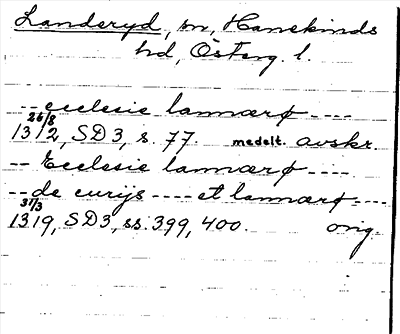 Landeryd, sn, Hanekinds
hd, Österg. l.
-- ecclesie lannærø ----
26/8
1312, SD3, s. 77. medelt. avskr.
-- Ecclesie lannærø ----
-- de curijs ---- et lannærø ----
31/3
1319, SD3, ss. 399, 400. orig.